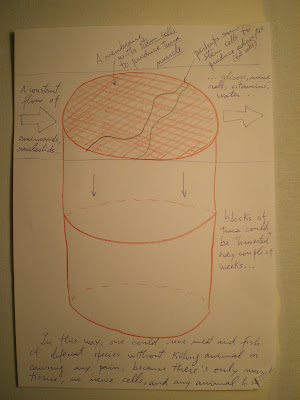 A membrane
with stem cells
to produce tuna
muscle
perhaps some
stem cells for
A constant
flow of
aminoacids,
nucleotide,
... glucose, mine
rals, vitamins,
water...
blocks of
tuna could
be "harvested"
every couple of
weeks...
In this way, one could make meat and fish
of diferent species without killing animal or
causing any pain, because there's only muscle
tissue, no nerve cells, and any animal